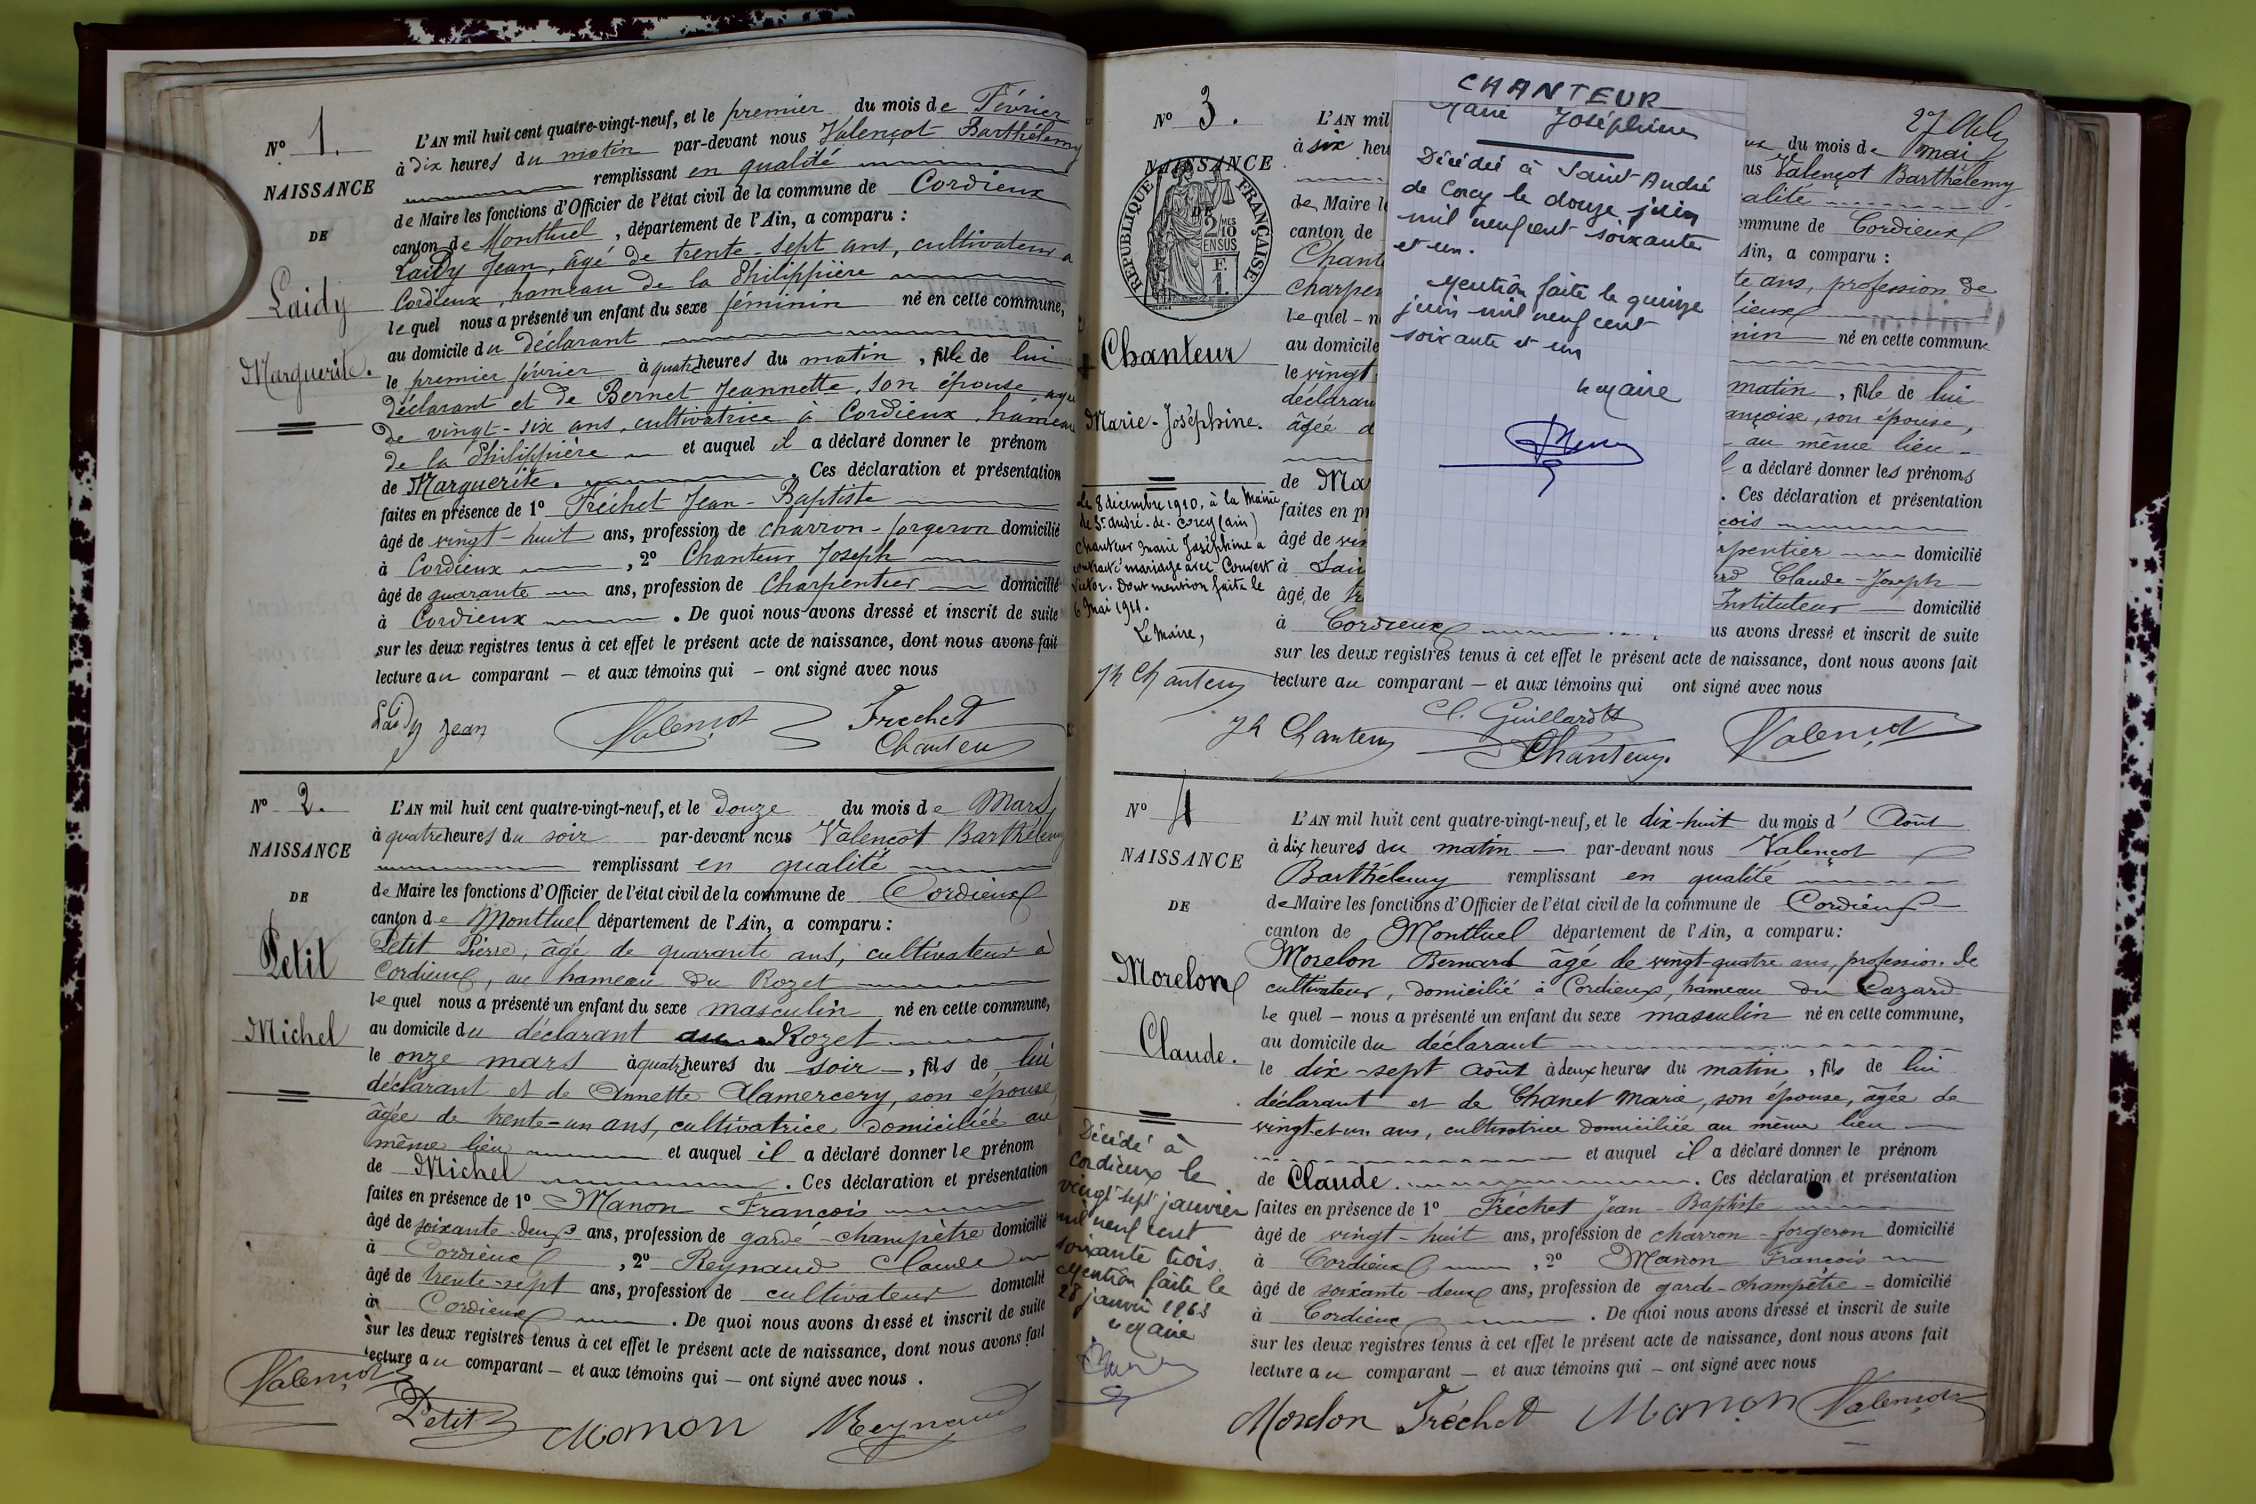 N° 1.
NAISSANCE
DE
Laidy
Marguerite.
L'AN mil huit cent quatre-vingt-neuf, et le premier du mois de Février
à dix heures du matin par-devant nous Valençot Barthélemy
remplissant en qualité
de Maire les fonctions d'Officier de l'état civil de la commune de Cordieux
canton de Montluel, département de l'Ain, a comparu :
Laidy Jean, âgé de trente-sept ans, cultivateur à
Cordieux, hameau de la Philippière
lequel nous a présenté un enfant du sexe féminin né en cette commune,
au domicile du déclarant
le premier février à quatre heures du matin, fille de lui
déclarant et de Bernet Jeannette, son épouse, âgée
de vingt-six ans, cultivatrice à Cordieux, hameau
de la Philippière et auquel il a déclaré donner le prénom
de Marguerite. Ces déclaration et présentation
faites en présence de 1° Fréchet Jean-Baptiste
âgé de vingt-huit ans, profession de charron-forgeron domicilié
à Cordieux, 2° Chanteur Joseph
âgé de quarante ans, profession de Charpentier domicilié
à Cordieux. De quoi nous avons dressé et inscrit de suite
sur les deux registres tenus à cet effet le présent acte de naissance, dont nous avons fait
lecture au comparant – et aux témoins qui – ont signé avec nous
Laidy Jean Valençot Frechet
Chanteur
N° 2.
NAISSANCE
DE
Petit
Michel
L'AN mil huit cent quatre-vingt-neuf, et le douze du mois de Mars
à quatre heures du soir par-devant nous Valençot Barthélemy
remplissant en qualité
de Maire les fonctions d'Officier de l'état civil de la commune de Cordieux
canton de Montluel département de l'Ain, a comparu :
Petit Pierre, âgé de quarante ans, cultivateur à
Cordieux, au hameau du Rozet
lequel nous a présenté un enfant du sexe masculin né en cette commune,
au domicile du déclarant au Rozet
le onze mars à quatre heures du soir, fils de lui
déclarant et de Annette Alamercery, son épouse,
âgée de trente-un ans, cultivatrice domiciliée au
même lieu et auquel il a déclaré donner le prénom
de Michel. Ces déclaration et présentation
faites en présence de 1° Manon François
âgé de soixante-deux ans, profession de garde-champètre domicilié
à Cordieux, 2° Reynaud Claude
âgé de trente-sept ans, profession de cultivateur domicilié
à Cordieux. De quoi nous avons dressé et inscrit de suite
sur les deux registres tenus à cet effet le présent acte de naissance, dont nous avons fait
lecture au comparant – et aux témoins qui – ont signé avec nous.
Valençot
Petit Manon Reynaud
N° 3.
NAISSANCE
DE
RÉPUBLIQUE FRANÇAISE
2 MES
10
EN SUS
F.
1.
Chanteur
Marie-Joséphine.
Le 8 décembre 1910, à la Mairie
de St André-de-Corcy (Ain)
Chanteur Marie Joséphine a
contracté mariage avec Convert
Victor. Dont mention faite le
6 Mai 1911.
Le Maire,
Jh Chanteur
L'AN mil
à six heu
de Maire l
canton de
Chant
charpen
lequel – n
au domicile
le vingt
déclaran
âgée d
de Ma
faites en p
âgé de vin
à Sain
âgé de tr
à Cordieux
CHANTEUR
Marie Joséphine
Décédée à Saint-André
de Corcy le douze juin
mil neuf cent soixante
et un.
Mention faite le quinze
juin mil neuf cent
soixante et un
Le Maire
du mois de mai
us Valençot Barthélemy
alité
ommune de Cordieux
Ain, a comparu :
te ans, profession de
dieux
nin né en cette commune
matin, fille de lui
ançoise, son épouse,
au même lieu
a déclaré donner les prénoms
. Ces déclaration et présentation
çois
rpentier domicilié
rd Claude-Joseph
Instituteur domicilié
us avons dressé et inscrit de suite
sur les deux registres tenus à cet effet le présent acte de naissance, dont nous avons fait
lecture au comparant – et aux témoins qui ont signé avec nous
Jh Chanteur C. Guillard Chanteur Valençot
N° 4
NAISSANCE
DE
Morelon
Claude.
Décédé à
Cordieux le
vingt sept janvier
mil neuf cent
soixante trois.
Mention faite le
28 janvier 1963
Le Maire
L'AN mil huit cent quatre-vingt-neuf, et le dix-huit du mois d'Août
à dix heures du matin – par-devant nous Valençot
Barthélemy remplissant en qualité
de Maire les fonctions d'Officier de l'état civil de la commune de Cordieux
canton de Montluel département de l'Ain, a comparu :
Morelon Bernard âgé de vingt-quatre ans, profession de
cultivateur, domicilié à Cordieux, hameau du Cazard
lequel – nous a présenté un enfant du sexe masculin né en cette commune,
au domicile du déclarant
le dix-sept août à deux heures du matin, fils de lui
déclarant et de Chanet Marie, son épouse, âgée de
vingt-et-un ans, cultivatrice domiciliée au même lieu
et auquel il a déclaré donner le prénom
de Claude. Ces déclaration et présentation
faites en présence de 1° Fréchet Jean-Baptiste
âgé de vingt-huit ans, profession de charron-forgeron domicilié
à Cordieux, 2° Manon François
âgé de soixante-deux ans, profession de garde-champêtre domicilié
à Cordieux. De quoi nous avons dressé et inscrit de suite
sur les deux registres tenus à cet effet le présent acte de naissance, dont nous avons fait
lecture au comparant – et aux témoins qui – ont signé avec nous
Morelon Fréchet Manon Valençot